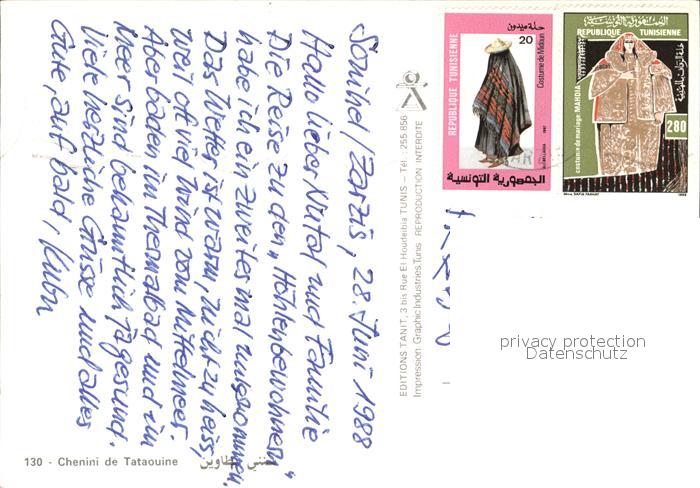 Sonihel/Zarzis, 28. Juni 1988
Hallo lieber und Familie
Die Reise zu den „Höhlenbewohnern“
habe ich ein zweites mal unternommen.
Das Wetter ist warm, nicht zu heiss,
weil oft viel Wind vom Mittelmeer.
Aber baden im Thermalbad und im
Meer sind bekanntlich ja gesund.
Viele herzliche Grüsse und alles
Gute, auf bald,
130 - Chenini de Tataouine
شنني تطاوين
EDITIONS TANIT, 3 bis Rue El Houdeibia TUNIS - Tél : 255.856
Impression Graphic Industries.Tunis REPRODUCTION INTERDITE
REPUBLIQUE TUNISIENNE
20
حلة ميدون
Costume de Midoun
الجمهورية التونسية
الجمهورية التونسية
REPUBLIQUE TUNISIENNE
costume de mariage MAHDIA
280
privacy protection
Datenschutz